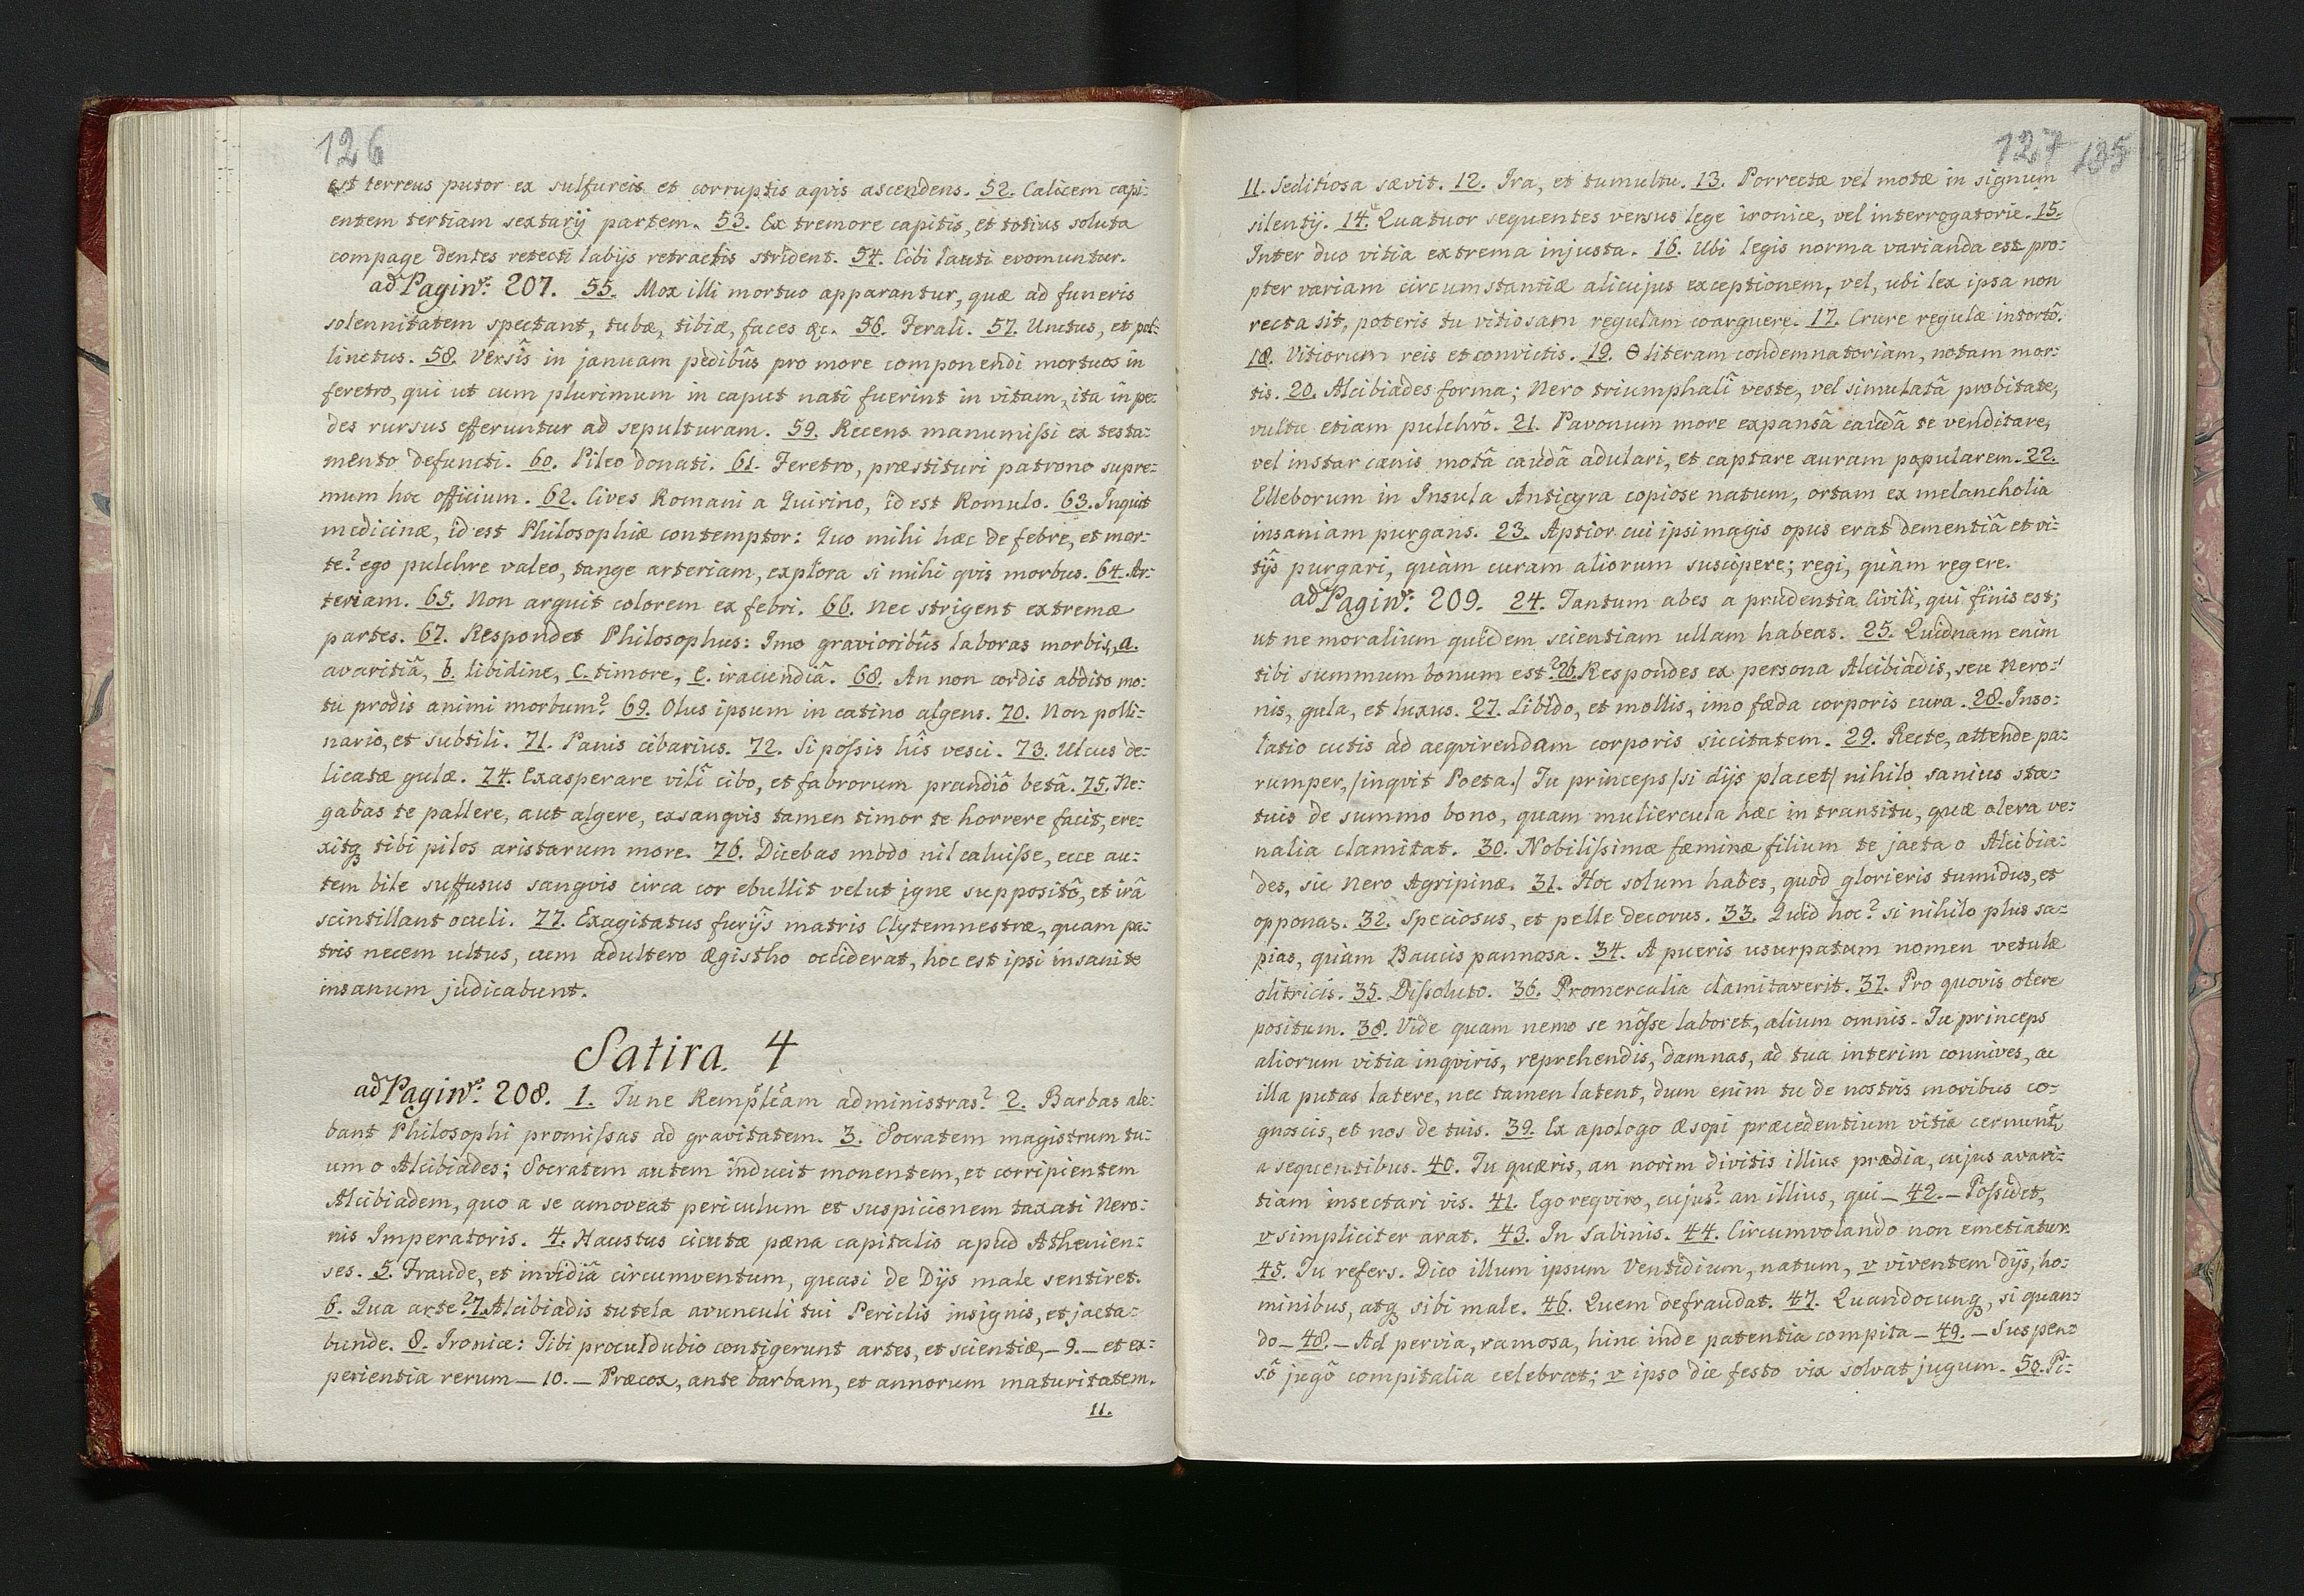 126
est terreus putor ex sulfureis et corruptis aqvis ascendens. 52. Calicem capi:
entem tertiam sextarij partem. 53. Ex tremore capitis, et totius soluta
compage dentes retecti labijs retractis strident. 54. Cibi lauti evomuntur.
ad Pagin: 207. 55. Mox illi mortuo apparantur, quæ ad funeris
solennitatem spectant, tubæ, tibiæ, faces &c. 56. Ferali. 57. Unctus, et pol:
linctus. 58. Versîs in januam pedibûs pro more componendi mortuos in
feretro, qui ut cum plurimum in caput nati fuerint in vitam, ita in pe:
des rursus efferuntur ad sepulturam. 59. Recens manumissi ex testa:
mento defuncti. 60. Pileo donati. 61. Feretro, præstituri patrono supre:
mum hoc officium. 62. Cives Romani a Quirino, id est Romulo. 63. Inquit
medicinæ, id est Philosophiæ contemptor: Quo mihi hæc de febre, et mor:
te? ego pulchre valeo, tange arteriam, explora si mihi qvis morbus. 64. Ar:
teriam. 65. Non arguit colorem ex febri. 66. Nec strigent extremæ
partes. 67. Respondet Philosophus: Imo gravioribûs laboras morbis, a.
avaritiâ, b. libidine, c. timore, e. iracundiâ. 68. An non cordis abdito mo:
tu prodis animi morbum? 69. Olus ipsum in catino algens. 70. Non polli:
nario, et subtili. 71. Panis cibarius. 72. Si possis hîs vesci. 73. Ulcus de:
licatæ gulæ. 74. Exasperare vilî cibo, et fabrorum prandiô betâ. 75. Ne:
gabas te pallere, aut algere, exsanqvis tamen timor te horrere facit, ere:
xitq tibi pilos aristarum more. 76. Dicebas modo nil caluisse, ecce au:
tem bile suffusus sangvis circa cor ebullit velut igne suppositô, et irâ
scintillant oculi. 77. Exagitatus furijs matris Clytemnestræ, quam pa:
tris necem ultus, cum adultero Ægistho occiderat, hoc est ipsi insani te
insanum judicabunt.
Satira. 4
ad Pagin: 208. 1. Tu ne Rempłcam administras? 2. Barbas ale:
bant Philosophi promissas ad gravitatem. 3. Socratem magistrum tu:
um o Alcibiades; Socratem autem inducit monentem, et corripientem
Alcibiadem, quo a se amoveat periculum et suspicionem taxati Nero:
nis Imperatoris. 4. Haustus cicutæ pæna capitalis apud Athenien:
ses. 5. Fraude, et invidiâ circumventum, quasi de Dijs male sentiret.
6. Qua arte? 7. Alcibiadis tutela avunculi tui Periclis insignis, et jacta:
bunde. 8. Ironice: Tibi proculdubio contigerunt artes, et scientiæ, – 9. – et ex:
perientia rerum – 10. – Præcox, ante barbam, et annorum maturitatem.
11.
127 135
11. Seditiosa sævit. 12. Ira, et tumultu. 13. Porrectæ vel motæ in signum
silentij. 14. Quatuor sequentes versus lege ironice, vel interrogatorie. 15.
Inter duo vitia extrema injusta. 16. Ubi legis norma varianda est pro:
pter variam circumstantiæ alicujus exceptionem, vel, ubi lex ipsa non
recta sit, poteris tu vitiosam regulam coarguere. 17. Crure regulæ intortô.
18. Vitiorum reis et convictis. 19. Θ literam condemnatoriam, notam mor:
tis. 20. Alcibiades forma; Nero triumphalî veste, vel simulatâ probitate,
vultu etiam pulchrô. 21. Pavonum more expansâ caudâ te venditare,
vel instar canis motâ caudâ adulari, et captare auram popularem. 22.
Elleborum in Insula Anticyra copiose natum, ortam ex melancholia
insaniam purgans. 23. Aptior cui ipsi magis opus erat dementiâ et vi:
tijs purgari, quàm curam aliorum suscipere; regi, quàm regere.
ad Pagin: 209. 24. Tantum abes a prudentia Civili, qui finis est;
ut ne moralium quidem scientiam ullam habeas. 25. Quidnam enim
tibi summum bonum est? 26. Respondes ex persona Alcibiadis, seu Nero:
nis, gula, et luxus. 27. Libido, et mollis, imo fæda corporis cura. 28. Inso:
latio cutis ad aeqvirendam corporis siccitatem. 29. Recte, attende pa:
rumper, /inqvit Poeta./ Tu princeps /si dijs placet/ nihilo sanius sta:
tuis de summo bono, quam muliercula hæc in transitu, quæ olera ve:
nalia clamitat. 30. Nobilissimæ fæminæ filium te jacta o Alcibia:
des, sic Nero Agripinæ. 31. Hoc solum habes, quod glorieris tumidus, et
opponas. 32. Speciosus, et pelle decorus. 33. Quid hoc? si nihilo plus sa:
pias, quàm Baucis pannosa. 34. A pueris usurpatum nomen vetulæ
olitricis. 35. Dissoluto. 36. Promercalia clamitaverit. 37. Pro quovis olere
positum. 38. Vide quam nemo se nôsse laboret, alium omnis. Tu princeps
aliorum vitia inqviris, reprehendis, damnas, ad tua interim connives, ac
illa putas latere, nec tamen latent, dum enim tu de nostris moribus co:
gnoscis, et nos de tuis. 39. Ex apologo Æsopi præcedentium vitia cernunt,
a sequentibus. 40. Tu quæris, an norim divitis illius prædia, cujus avari:
tiam insectari vis. 41. Ego reqviro, cujus? an illius, qui – 42. – Possidet,
v simpliciter arat. 43. In Sabinis. 44. Circumvolando non emetiatur.
45. Tu refers. Dico illum ipsum Ventidium, natum, v viventem dijs, ho:
minibus, atq sibi male. 46. Quem defraudat. 47. Quandocunq, si quan:
do – 48. – Ad pervia, ramosa, hinc inde patentia compita – 49. – Suspen:
sô jugô compitalia celebrat; v ipso die festo vix solvat jugum. 50. Pi: